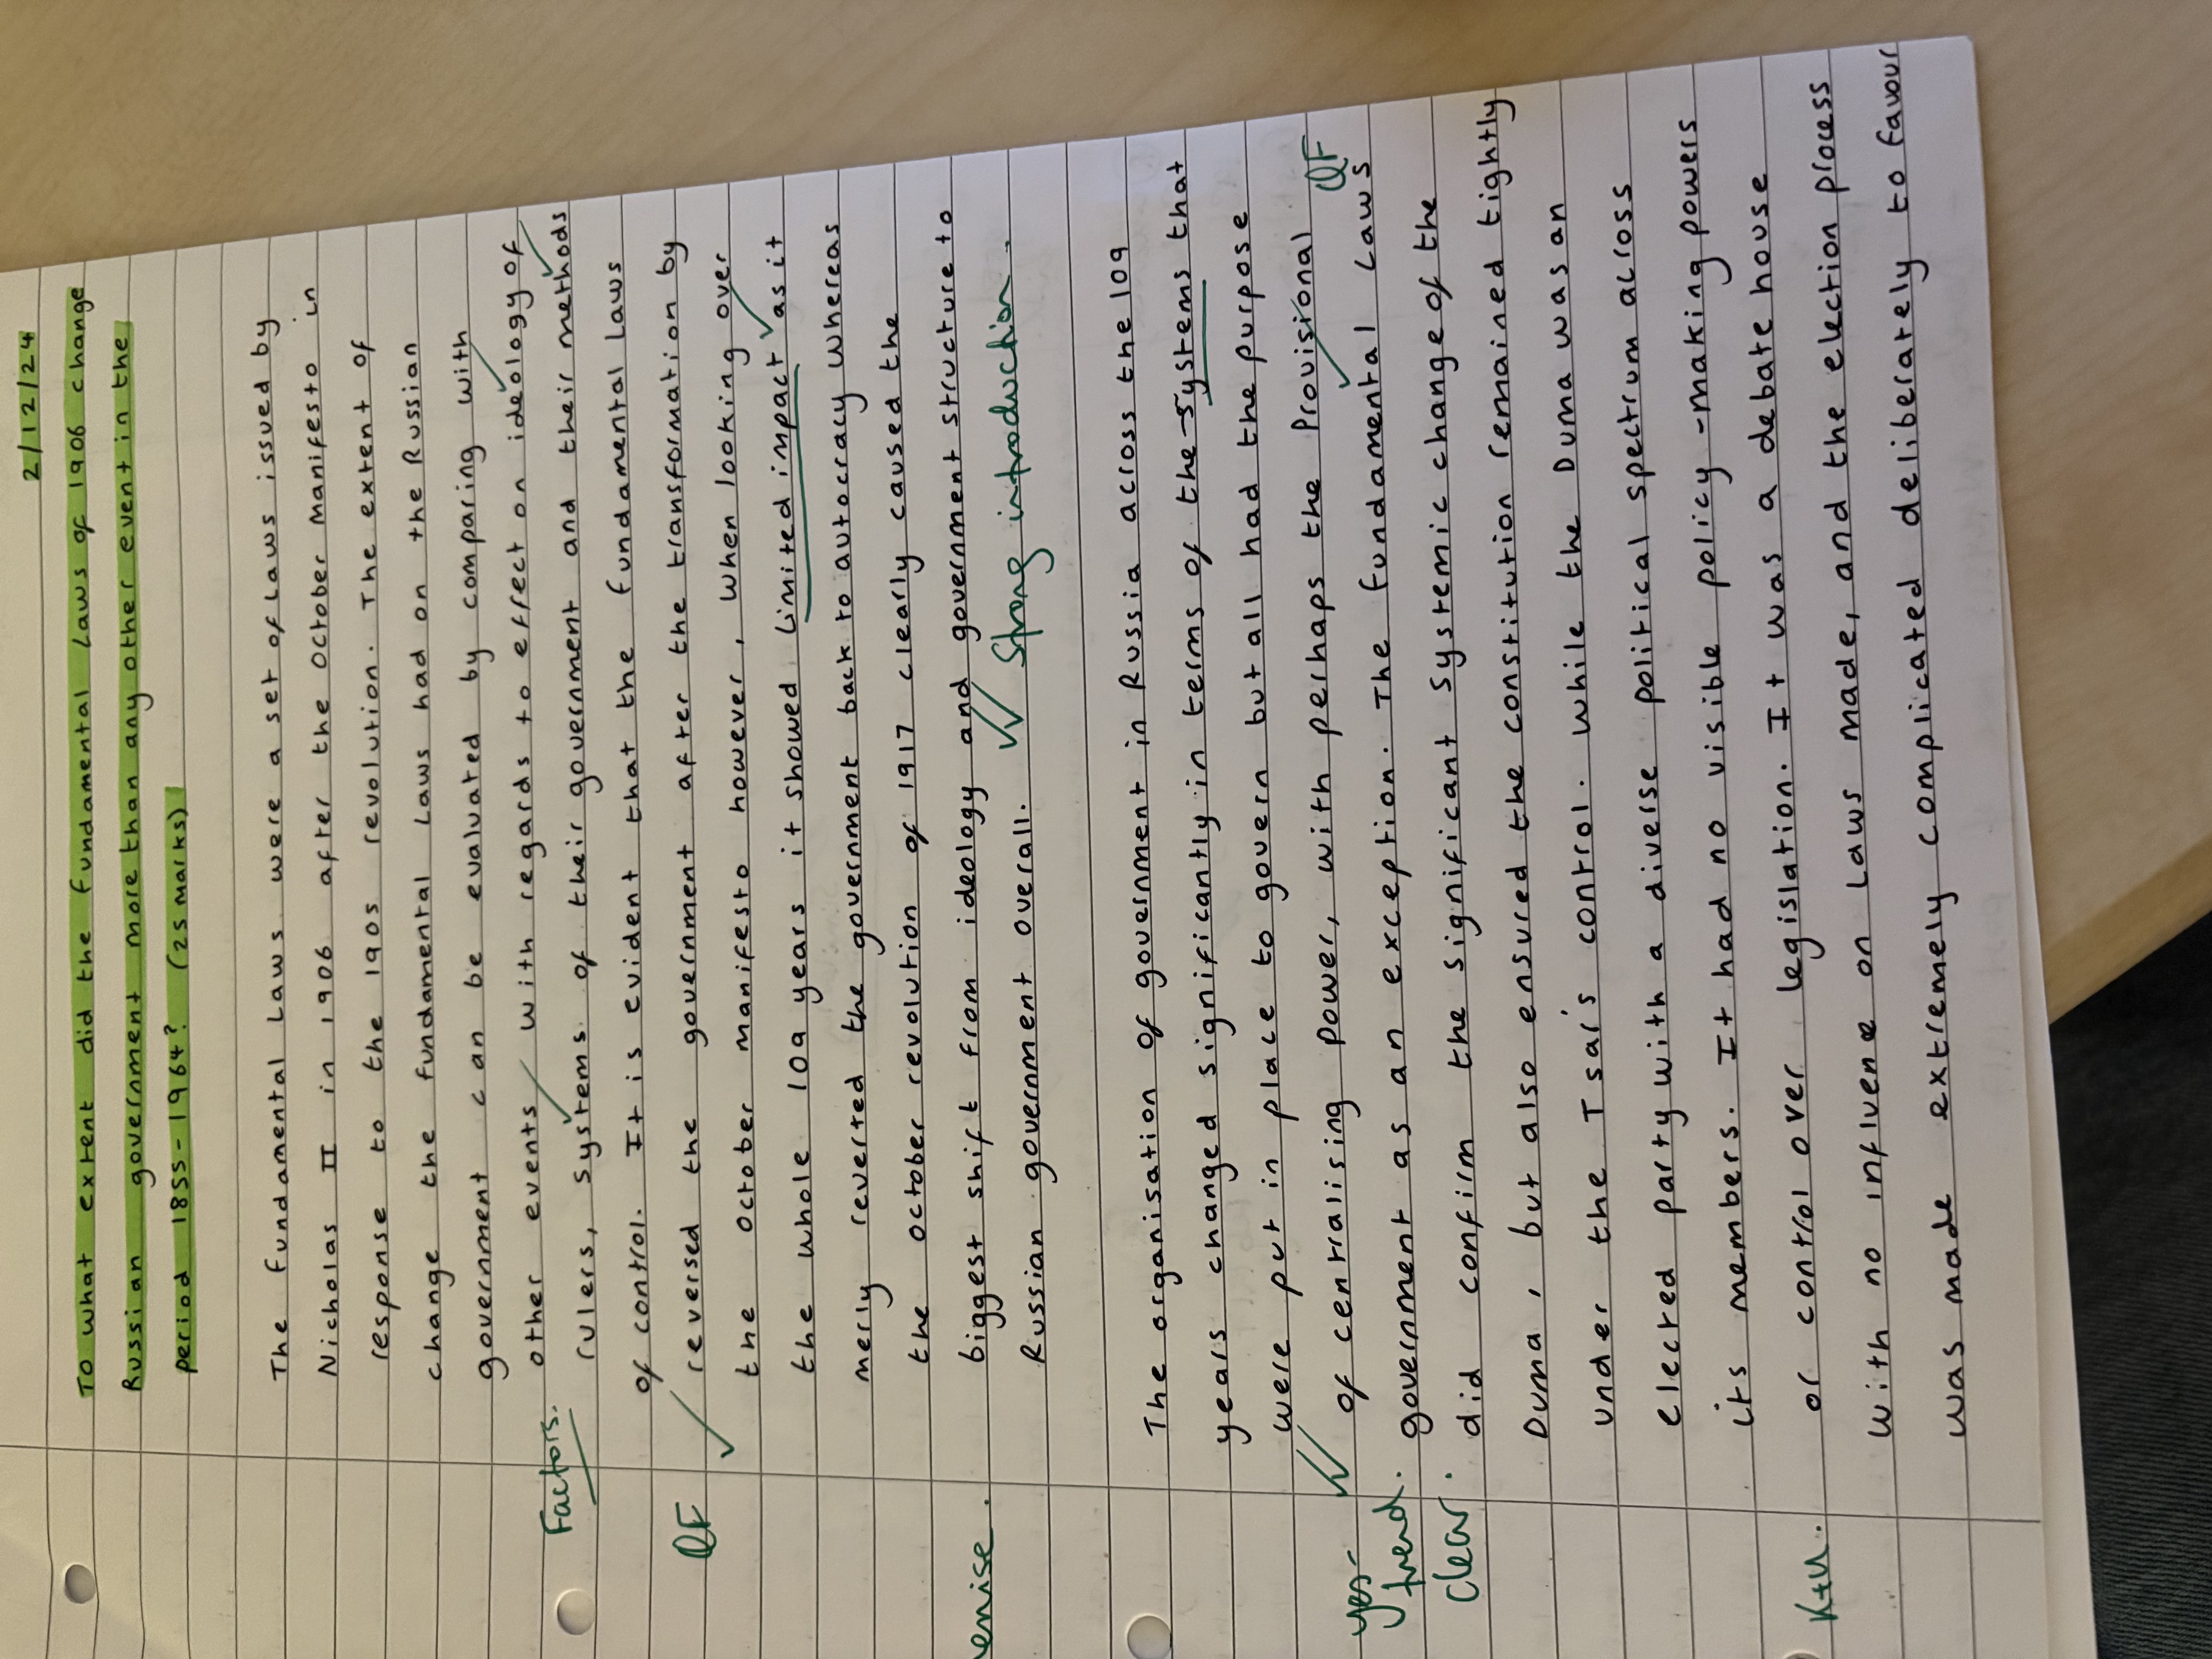 2/12/24
To what extent did the fundamental Laws of 1906 change
Russian government more than any other event in the
period 1855-1964? (25 marks)
The fundamental Laws were a set of Laws issued by
Nicholas II in 1906 after the October Manifesto in
response to the 1905 revolution. The extent of
change the fundamental Laws had on the Russian
government can be evaluated by comparing with
other events with regards to effect on ideology of
Factors.
rulers, systems of their government and their methods
of control. It is evident that the fundamental Laws
QF
reversed the government after the transformation by
the october manifesto however, when looking over
the whole 109 years it showed limited impact as it
merly reverted the government back to autocracy whereas
the october revolution of 1917 clearly caused the
biggest shift from ideology and government structure to
Russian government overall.
Strong introduction.
The organisation of government in Russia across the 109
years changed significantly in terms of the systems that
were put in place to govern but all had the purpose
of centralising power, with perhaps the Provisional
QF
yes-
trend.
clear.
government as an exception. The fundamental Laws
did confirm the significant systemic change of the
Duma, but also ensured the constitution remained tightly
under the Tsar's control. while the Duma was an
elected party with a diverse political spectrum across
its members. It had no visible policy-making powers
or control over legislation. It was a debate house
K+U.
with no influene on Laws made, and the election process
was made extremely complicated deliberately to favour